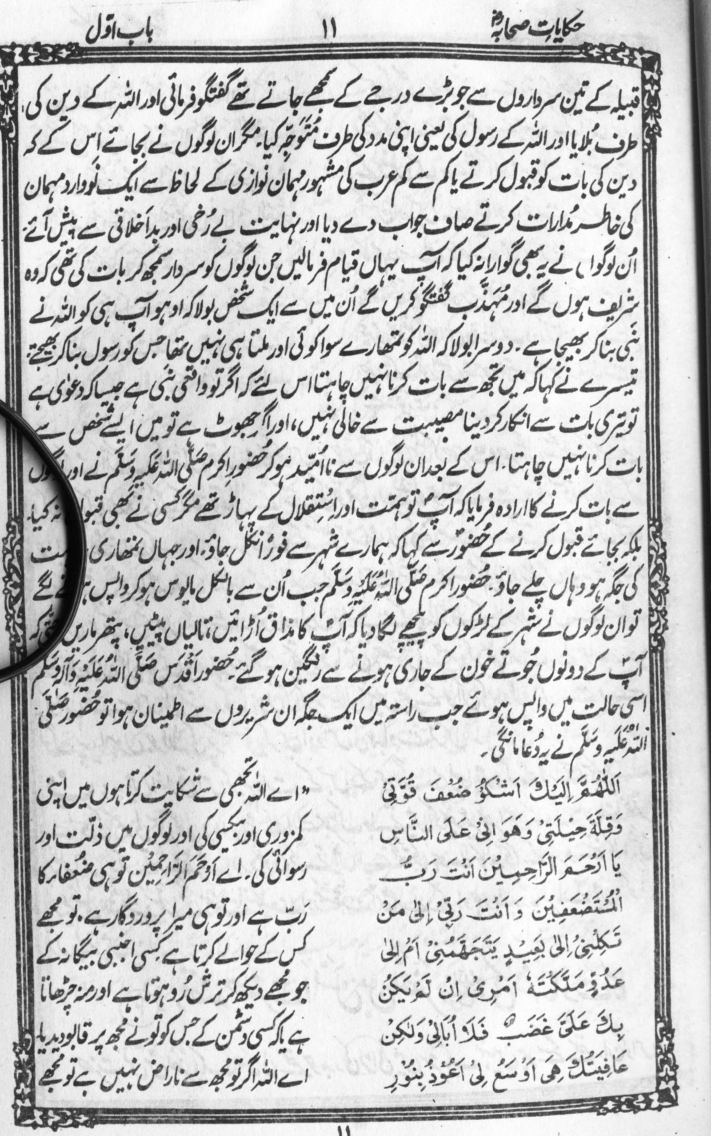 حکایاتِ صحابہؓ ۱۱ باب اوّل
قبیلہ کے تین سرداروں سے جو بڑے درجے کے سمجھے جاتے تھے گفتگو فرمائی اور اللہ کے دین کی
طرف بُلایا اور اللہ کے رسول کی یعنی اپنی مدد کی طرف مُتَوجِّہ کیا۔ مگر ان لوگوں نے بجائے اس کے کہ
دین کی بات کو قبول کرتے یا کم سے کم عرب کی مشہور مہمان نوازی کے لحاظ سے ایک نَو وارد مہمان
کی خاطر مُدارات کرتے صاف جواب دے دیا اور نہایت بے رُخی اور بداَخلاقی سے پیش آئے۔
اُن لوگوں نے یہ بھی گوارا نہ کیا کہ آپ یہاں قیام فرمالیں جن لوگوں کو سردار سمجھ کر بات کی تھی کہ وہ
شریف ہوں گے اور مُہذّب گفتگو کریں گے اُن میں سے ایک شخص بولا کہ اوہو آپ ہی کو اللہ نے
نبی بنا کر بھیجا ہے۔ دوسرا بولا کہ اللہ کو تمھارے سوا کوئی اور ملتا ہی نہیں تھا جس کو رسول بنا کر بھیجتے۔
تیسرے نے کہا کہ میں تجھ سے بات کرنا نہیں چاہتا اس لئے کہ اگر تو واقعی نبی ہے جیسا کہ دعوٰی ہے
تو تیری بات سے انکار کر دینا مصیبت سے خالی نہیں، اور اگر جھوٹ ہے تو میں ایسے شخص سے
بات کرنا نہیں چاہتا۔ اس کے بعد ان لوگوں سے نا اُمّید ہو کر حُضورِ اکرم صَلَّی اللہُ عَلَیْہِ وَسَلَّم نے اور لوگوں
سے بات کرنے کا ارادہ فرمایا کہ آپؐ تو ہمّت اور اِسْتِقلال کے پہاڑ تھے مگر کسی نے بھی قبول نہ کیا۔
بلکہ بجائے قبول کرنے کے حُضورؐ سے کہا کہ ہمارے شہر سے فوراً نکل جاؤ۔ اور جہاں تمھاری
کی جگہ ہو وہاں چلے جاؤ۔ حُضورِ اکرم صَلَّی اللہُ عَلَیْہِ وَسَلَّم جب اُن سے بالکل مایوس ہو کر واپس ہونے لگے
تو ان لوگوں نے شہر کے لڑکوں کو پیچھے لگا دیا کہ آپؐ کا مذاق اُڑائیں، تالیاں پیٹیں، پتھر ماریں حتّٰی کہ
آپؐ کے دونوں جُوتے خون کے جاری ہونے سے رنگین ہو گئے۔ حُضورِ اَقْدَس صَلَّی اللہُ عَلَیْہِ وَآلِہٖ وَسَلَّم
اسی حالت میں واپس ہوئے جب راستہ میں ایک جگہ ان شریروں سے اطمینان ہوا تو حُضور صَلَّی
اللہُ عَلَیْہِ وَسَلَّم نے یہ دُعا مانگی۔
اَللّٰهُمَّ اِلَيْكَ اَشْكُوْ ضُعْفَ قُوَّتِيْ
وَقِلَّةَ حِيْلَتِيْ وَهَوَانِيْ عَلَى النَّاسِ
يَا اَرْحَمَ الرَّاحِمِيْنَ اَنْتَ رَبُّ
الْمُسْتَضْعَفِيْنَ وَاَنْتَ رَبِّيْ اِلٰى مَنْ
تَكِلُنِيْ اِلٰى بَعِيْدٍ يَتَجَهَّمُنِيْ اَمْ اِلٰى
عَدُوٍّ مَلَّكْتَهٗ اَمْرِيْ اِنْ لَّمْ يَكُنْ
بِكَ عَلَيَّ غَضَبٌ فَلَا اُبَالِيْ وَلٰكِنْ
عَافِيَتُكَ هِيَ اَوْسَعُ لِيْ اَعُوْذُ بِنُوْرِ
”اے اللہ تجھی سے شکایت کرتا ہوں میں اپنی
کمزوری اور بیکسی کی اور لوگوں میں ذلّت اور
رسوائی کی۔ اے اَرْحَمَ الرَّاحِمِیْن تو ہی ضُعَفاء کا
ربّ ہے اور تو ہی میرا پروردگار ہے۔ تو مجھے
کس کے حوالے کرتا ہے کسی اجنبی بیگانہ کے
جو مجھے دیکھ کر تُرش رُو ہوتا ہے اور منہ چڑھاتا
ہے یا کہ کسی دشمن کے جس کو تو نے مجھ پر قابو دیدیا۔
اے اللہ اگر تو مجھ سے ناراض نہیں ہے تو مجھے
۱۱